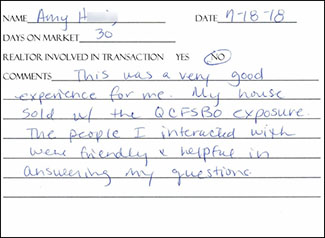 NAME Amy H DATE 7-18-18
DAYS ON MARKET 30
REALTOR INVOLVED IN TRANSACTION YES NO
COMMENTS This was a very good
experience for me. My house
sold w/ the QCFSBO exposure.
The people I interacted with
were friendly & helpful in
answering my questions